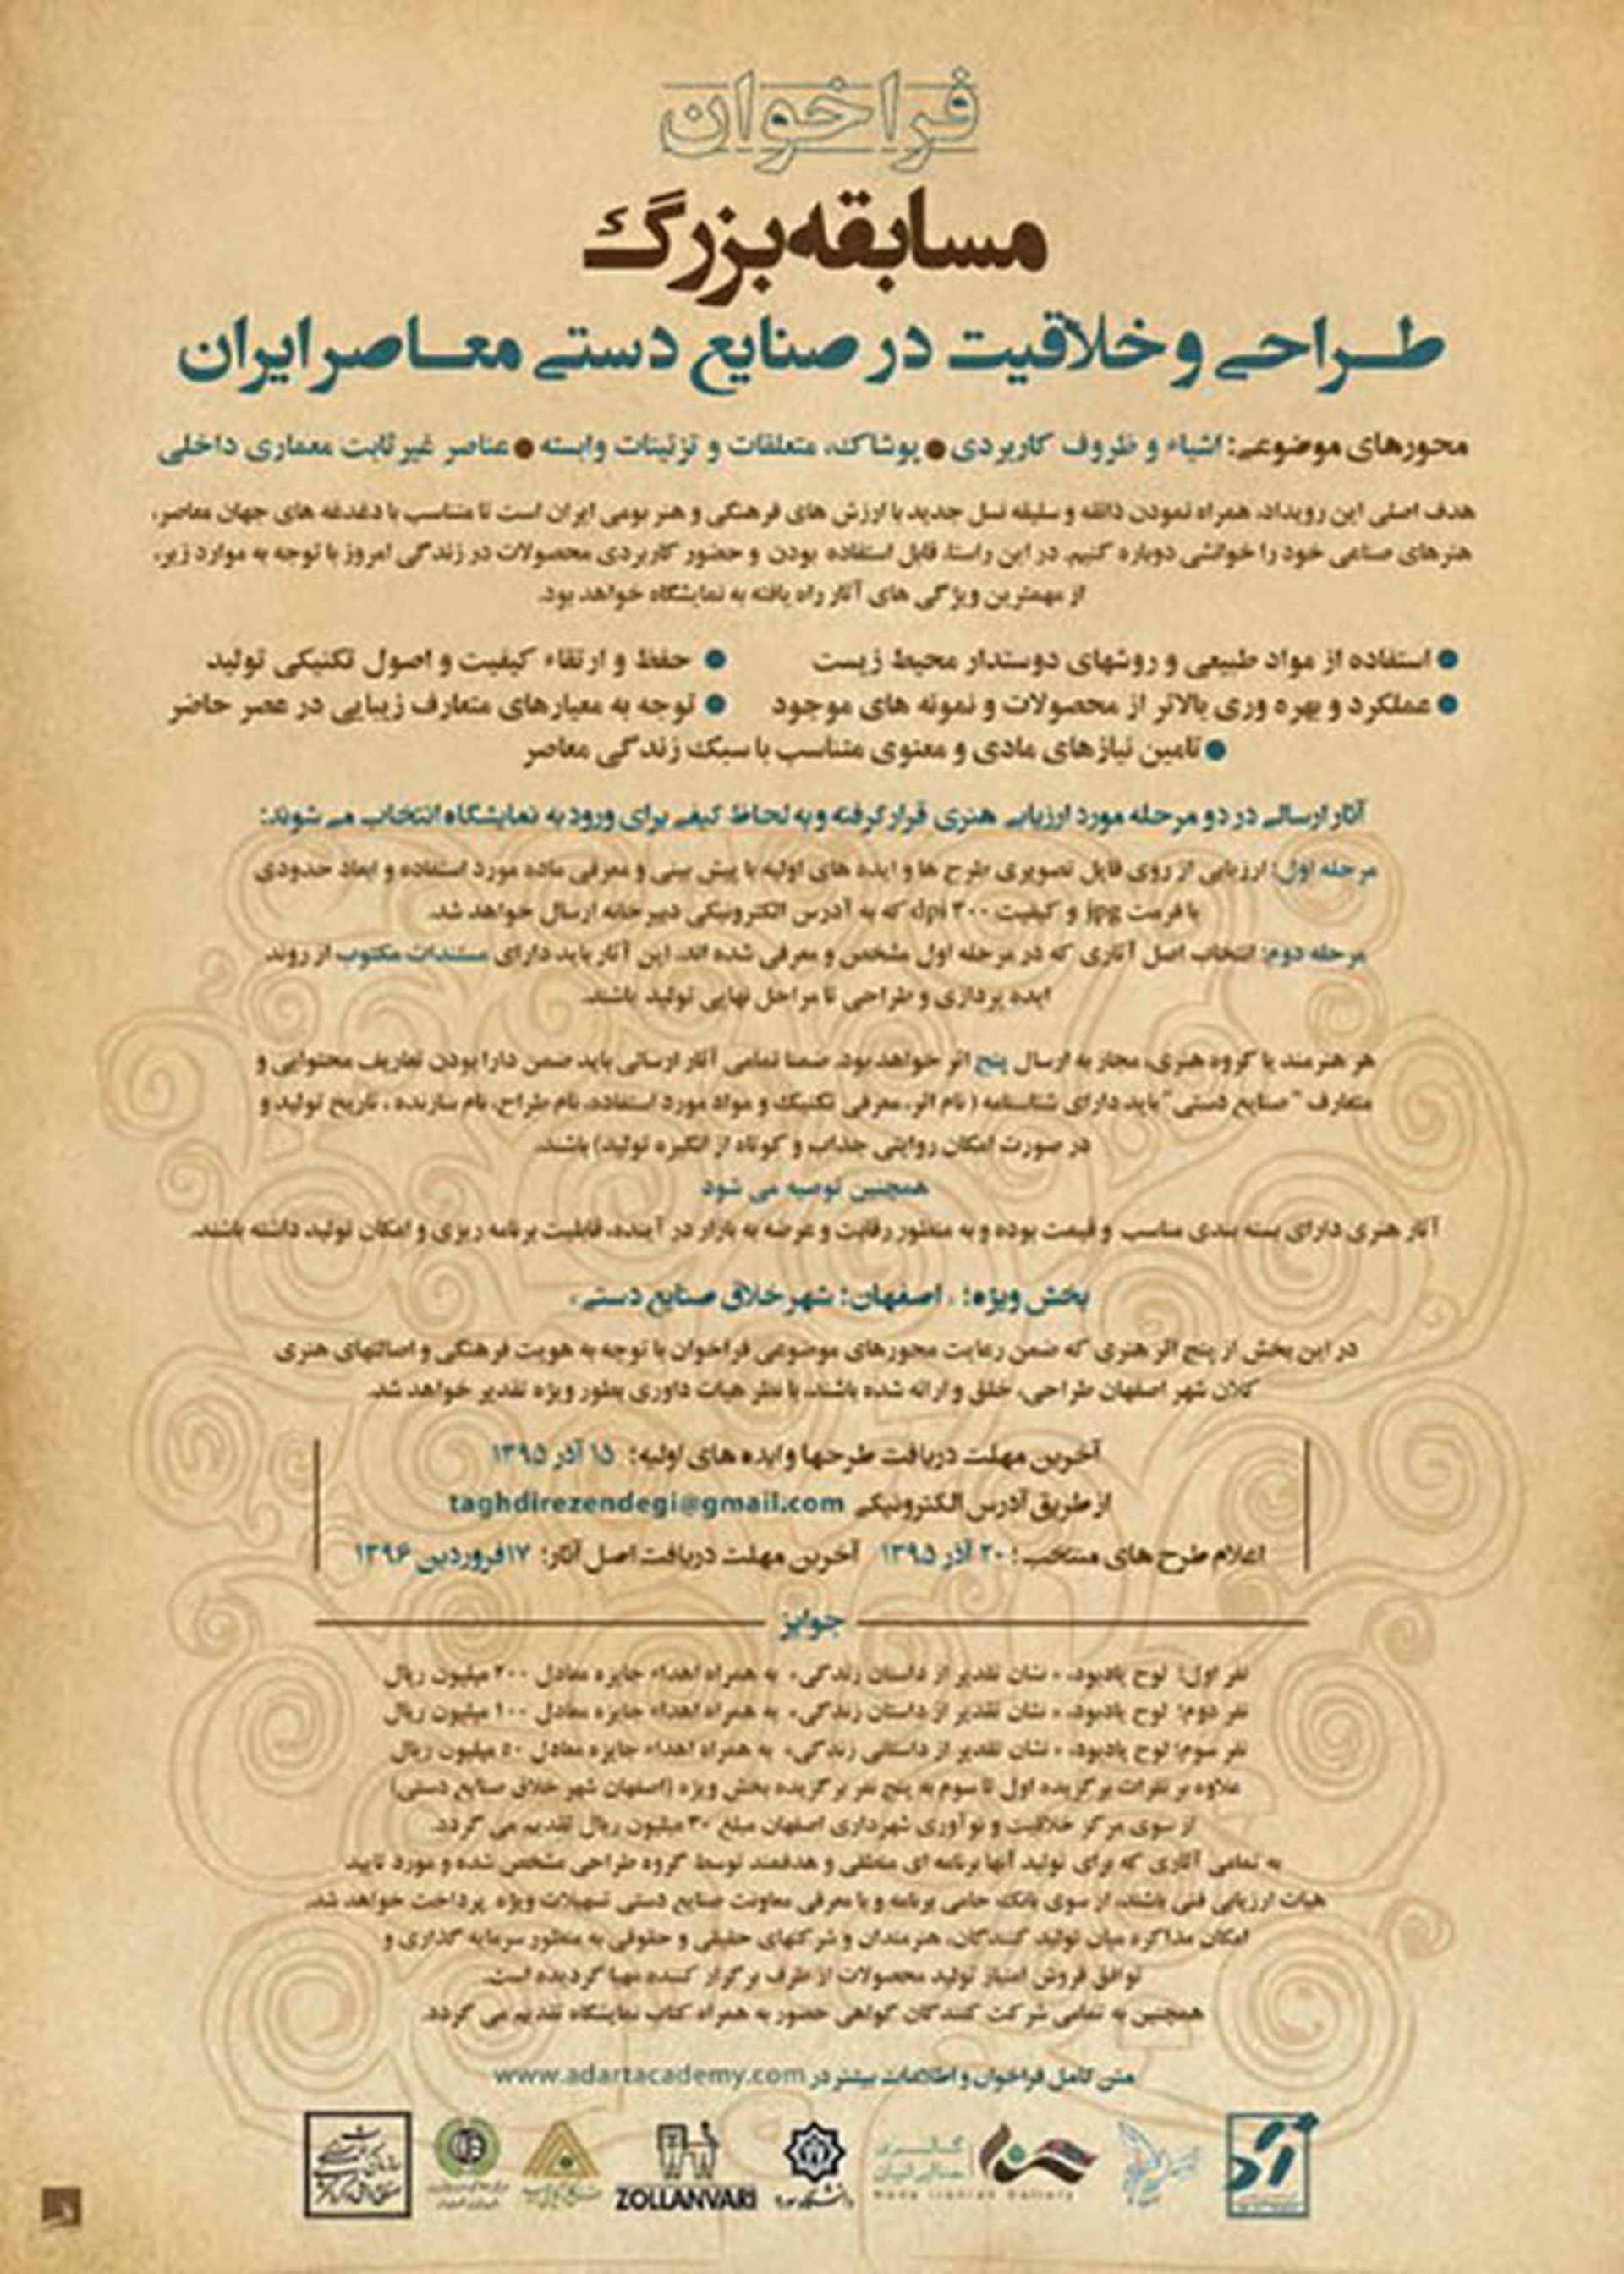 فراخوان
مسابقه بزرگ
طراحی و خلاقیت در صنایع دستی معاصر ایران
محورهای موضوعی: اشیاء و ظروف کاربردی ● پوشاک، متعلقات و تزئینات وابسته ● عناصر غیر ثابت معماری داخلی
هدف اصلی این رویداد، همراه نمودن ذائقه و سلیقه نسل جدید با ارزش های فرهنگی و هنر بومی ایران است تا متناسب با دغدغه های جهان معاصر،
هنرهای صناعی خود را خوانشی دوباره کنیم. در این راستا، قابل استفاده بودن و حضور کاربردی محصولات در زندگی امروز با توجه به موارد زیر،
از مهمترین ویژگی های آثار راه یافته به نمایشگاه خواهد بود.
● استفاده از مواد طبیعی و روشهای دوستدار محیط زیست ● حفظ و ارتقاء کیفیت و اصول تکنیکی تولید
● عملکرد و بهره وری بالاتر از محصولات و نمونه های موجود ● توجه به معیارهای متعارف زیبایی در عصر حاضر
● تامین نیازهای مادی و معنوی متناسب با سبک زندگی معاصر
آثار ارسالی در دو مرحله مورد ارزیابی هنری قرار گرفته و به لحاظ کیفی برای ورود به نمایشگاه انتخاب می شوند:
مرحله اول: ارزیابی از روی فایل تصویری طرح ها و ایده های اولیه با پیش بینی و معرفی ماده مورد استفاده و ابعاد حدودی
با فرمت jpg و کیفیت ۳۰۰ dpi که به آدرس الکترونیکی دبیرخانه ارسال خواهد شد.
مرحله دوم: انتخاب اصل آثاری که در مرحله اول مشخص و معرفی شده اند. این آثار باید دارای مستندات مکتوب از روند
ایده پردازی و طراحی تا مراحل نهایی تولید باشند.
هر هنرمند یا گروه هنری، مجاز به ارسال پنج اثر خواهد بود. ضمنا تمامی آثار ارسالی باید ضمن دارا بودن تعاریف محتوایی و
متعارف "صنایع دستی" باید دارای شناسنامه (نام اثر، معرفی تکنیک و مواد مورد استفاده، نام طراح، نام سازنده، تاریخ تولید و
در صورت امکان روایتی جذاب و کوتاه از انگیزه تولید) باشند.
همچنین توصیه می شود
آثار هنری دارای بسته بندی مناسب و قیمت بوده و به منظور رقابت و عرضه به بازار در آینده، قابلیت برنامه ریزی و امکان تولید داشته باشند.
بخش ویژه: «اصفهان: شهر خلاق صنایع دستی»
در این بخش از پنج اثر هنری که ضمن رعایت محورهای موضوعی فراخوان با توجه به هویت فرهنگی و اصالتهای هنری
کلان شهر اصفهان طراحی، خلق و ارائه شده باشند، با نظر هیات داوری بطور ویژه تقدیر خواهد شد.
آخرین مهلت دریافت طرحها و ایده های اولیه: ۱۵ آذر ۱۳۹۵
از طریق آدرس الکترونیکی taghdirezendegi@gmail.com
اعلام طرح های منتخب: ۲۰ آذر ۱۳۹۵ آخرین مهلت دریافت اصل آثار: ۱۷ فروردین ۱۳۹۶
جوایز
نفر اول: لوح یادبود، «نشان تقدیر از داستان زندگی» به همراه اهداء جایزه معادل ۲۰۰ میلیون ریال
نفر دوم: لوح یادبود، «نشان تقدیر از داستان زندگی» به همراه اهداء جایزه معادل ۱۰۰ میلیون ریال
نفر سوم: لوح یادبود، «نشان تقدیر از داستانی زندگی» به همراه اهداء جایزه معادل ۵۰ میلیون ریال
علاوه بر نفرات برگزیده اول تا سوم به پنج نفر برگزیده بخش ویژه (اصفهان شهر خلاق صنایع دستی)
از سوی مرکز خلاقیت و نوآوری شهرداری اصفهان مبلغ ۳۰ میلیون ریال تقدیم می گردد.
به تمامی آثاری که برای تولید آنها برنامه ای منطقی و هدفمند توسط گروه طراحی مشخص شده و مورد تایید
هیات ارزیابی فنی باشند، از سوی بانک حامی برنامه و با معرفی معاونت صنایع دستی تسهیلات ویژه پرداخت خواهد شد.
امکان مذاکره میان تولید کنندگان، هنرمندان و شرکتهای حقیقی و حقوقی به منظور سرمایه گذاری و
توافق فروش امتیاز تولید محصولات از طرف برگزار کننده مهیا گردیده است.
همچنین به تمامی شرکت کنندگان گواهی حضور به همراه کتاب نمایشگاه تقدیم می گردد.
متن کامل فراخوان و اطلاعات بیشتر در www.adartacademy.com
گالری
دانشگاه سوره
ZOLLANVARI